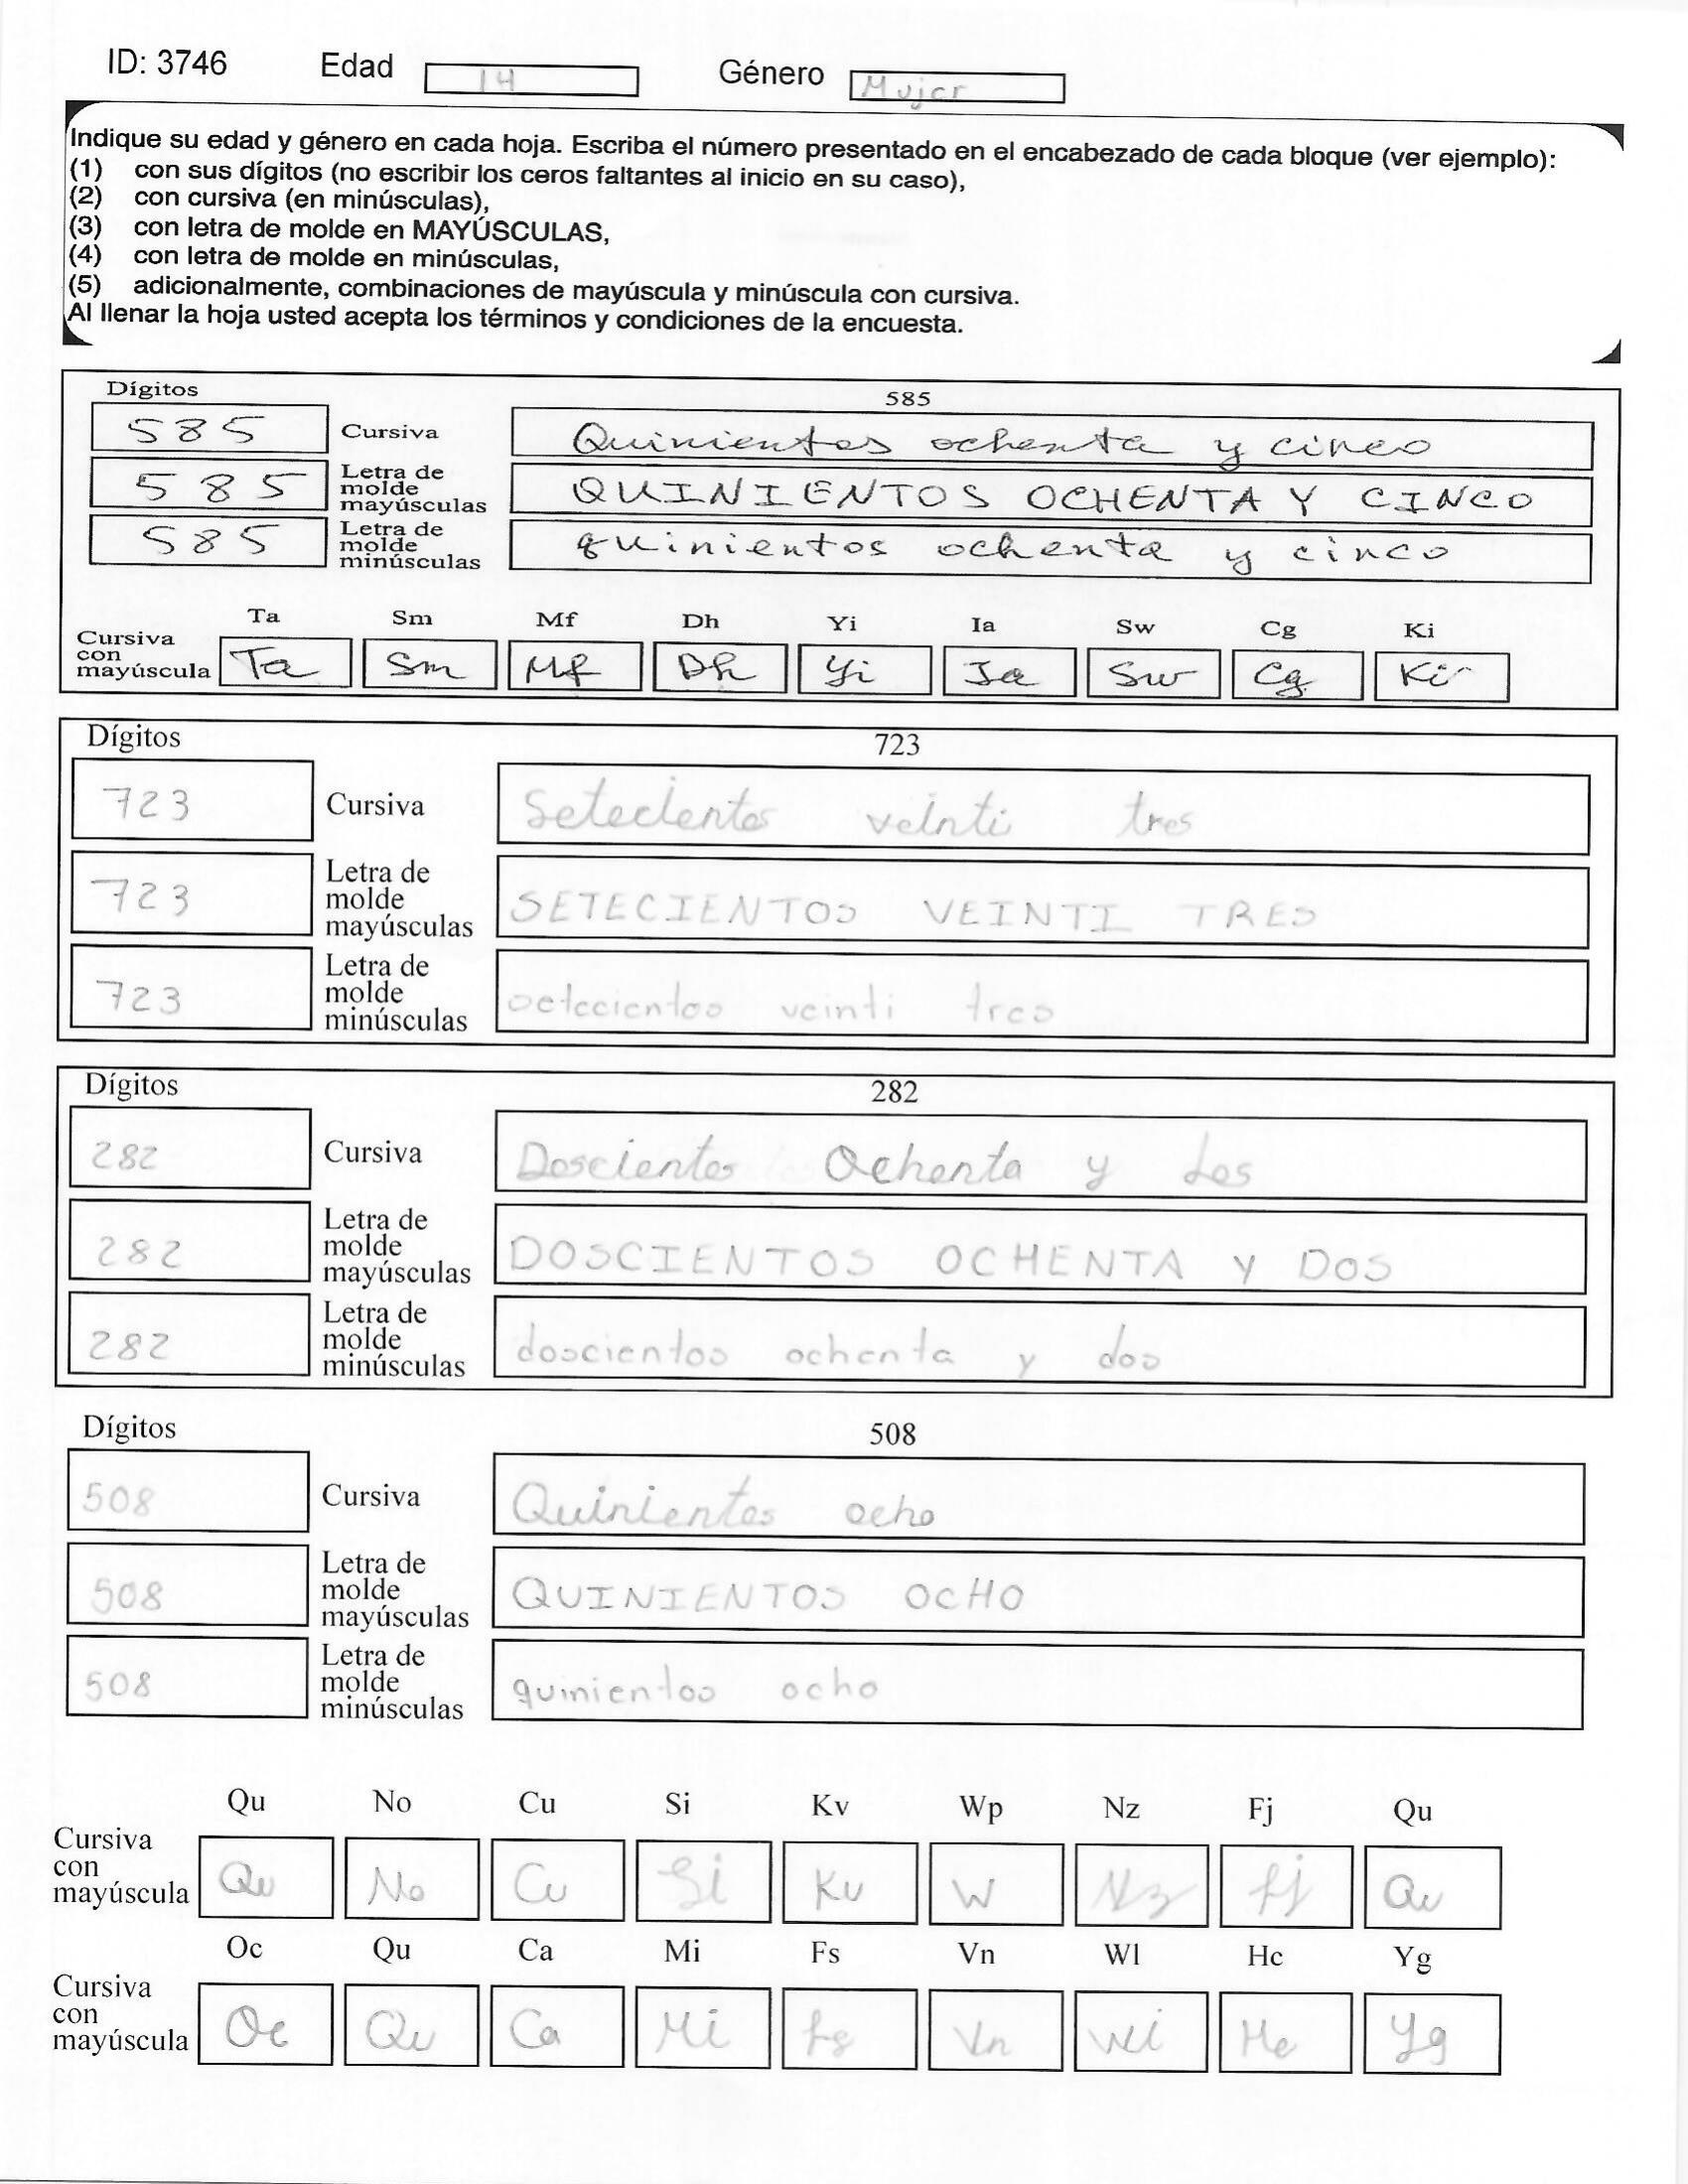 ID: 3746 Edad 14 Género Mujer
Indique su edad y género en cada hoja. Escriba el número presentado en el encabezado de cada bloque (ver ejemplo):
(1) con sus dígitos (no escribir los ceros faltantes al inicio en su caso),
(2) con cursiva (en minúsculas),
(3) con letra de molde en MAYÚSCULAS,
(4) con letra de molde en minúsculas,
(5) adicionalmente, combinaciones de mayúscula y minúscula con cursiva.
Al llenar la hoja usted acepta los términos y condiciones de la encuesta.
Dígitos 585
585 Cursiva Quinientos ochenta y cinco
585 Letra de molde mayúsculas QUINIENTOS OCHENTA Y CINCO
585 Letra de molde minúsculas quinientos ochenta y cinco
Ta Sm Mf Dh Yi Ia Sw Cg Ki
Cursiva con mayúscula Ta Sm Mf Dh Yi Ia Sw Cg Ki
Dígitos 723
723 Cursiva Setecientos veinti tres
723 Letra de molde mayúsculas SETECIENTOS VEINTI TRES
723 Letra de molde minúsculas setecientos veinti tres
Dígitos 282
282 Cursiva Doscientos Ochenta y dos
282 Letra de molde mayúsculas DOSCIENTOS OCHENTA Y DOS
282 Letra de molde minúsculas doscientos ochenta y dos
Dígitos 508
508 Cursiva Quinientos ocho
508 Letra de molde mayúsculas QUINIENTOS OCHO
508 Letra de molde minúsculas quinientos ocho
Qu No Cu Si Kv Wp Nz Fj Qu
Cursiva con mayúscula Qu No Cu Si Kv W Nz Fj Qu
Oc Qu Ca Mi Fs Vn Wl Hc Yg
Cursiva con mayúscula Oc Qu Ca Mi Fs Vn Wi Hc Yg